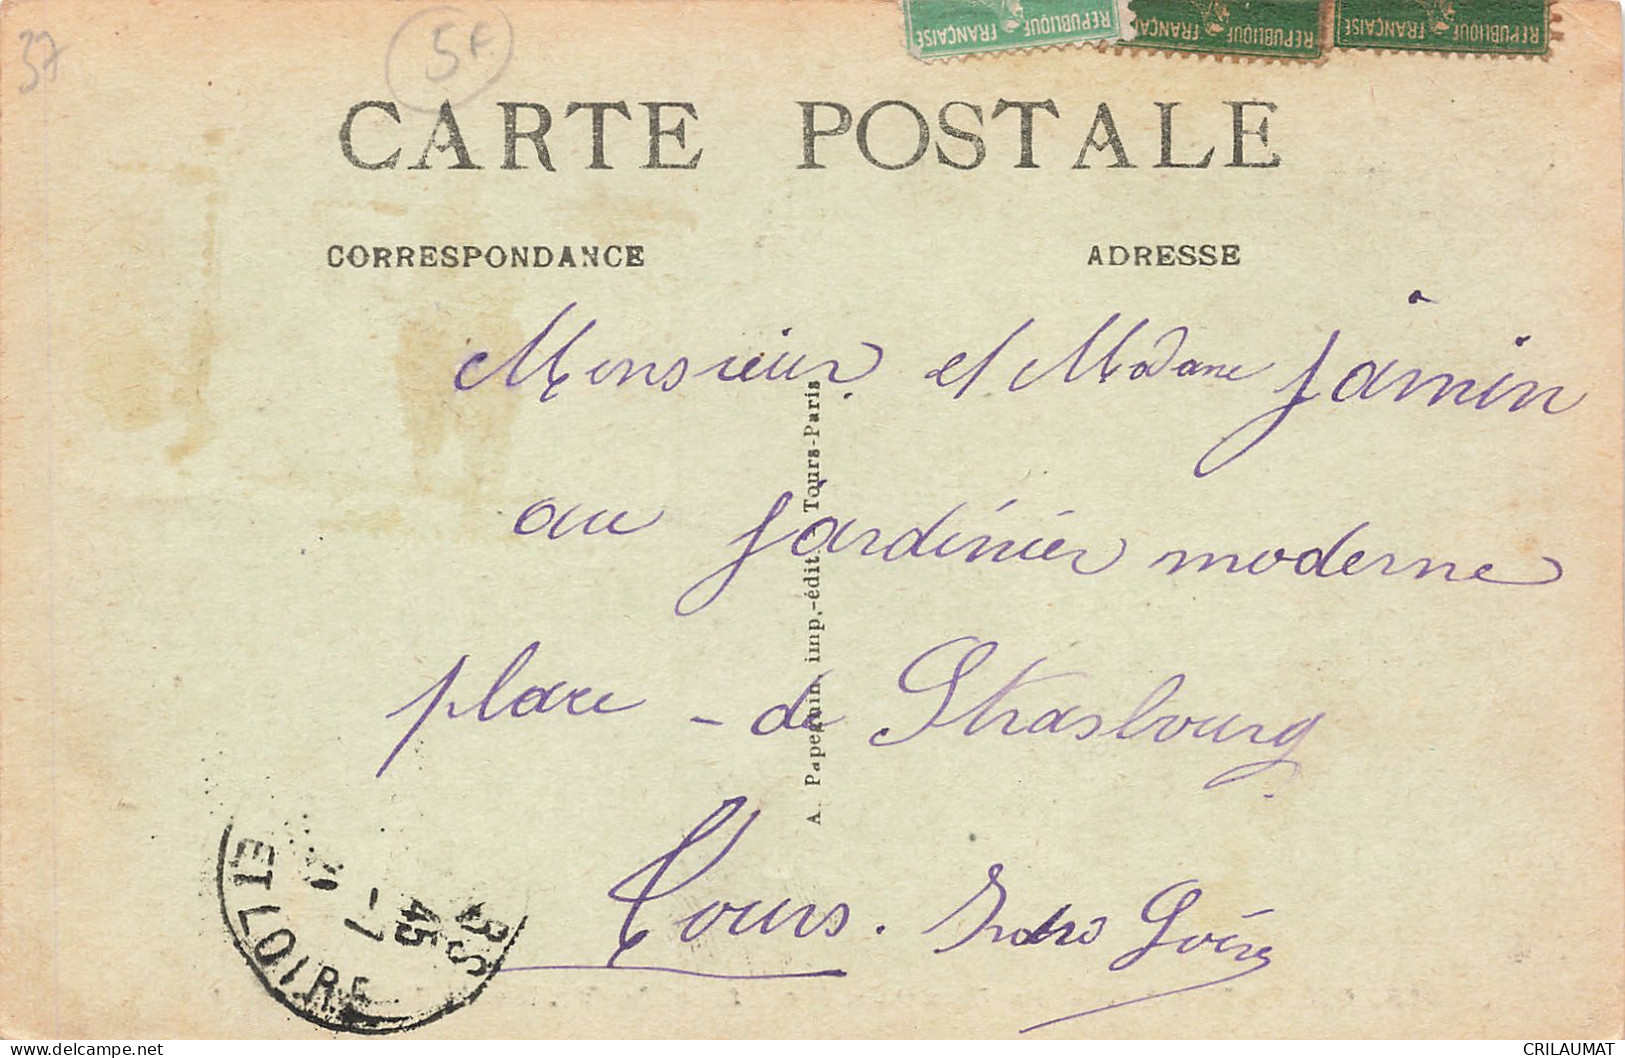 37
5F
REPUBLIQUE FRANÇAISE
REPUBLIQUE FRANÇAISE
REPUBLIQUE FRANÇAISE
CARTE POSTALE
CORRESPONDANCE
ADRESSE
Monsieur et Madame Jamin
au Jardinier moderne
place - de Strasbourg
Tours. Indre Loire
A. Papeghin imp.-édit. - Tours-Paris
ET LOIRE
45
CRILAUMAT